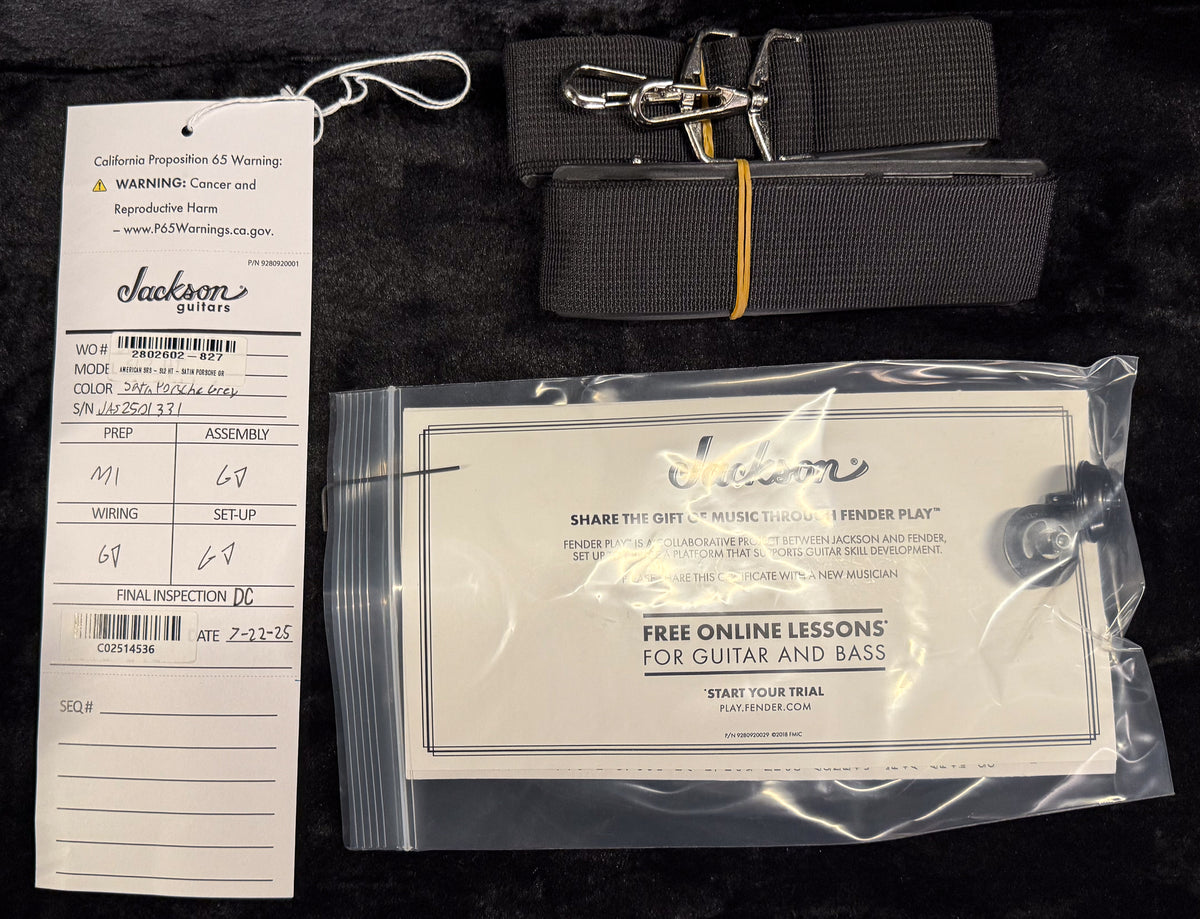 California Proposition 65 Warning:
WARNING: Cancer and
Reproductive Harm
– www.P65Warnings.ca.gov.
P/N 9280920001
Jackson
guitars
WO#
2802602-827
MODE
AMERICAN SRS - SL2 HT - SATIN PORSCHE GR
COLOR Satin Porsche Grey
S/N JAS2501331
PREP ASSEMBLY
M1 GD
WIRING SET-UP
GD GD
FINAL INSPECTION DC
ATE 7-22-25
C02514536
SEQ#
Jackson®
SHARE THE GIFT OF MUSIC THROUGH FENDER PLAY™
FENDER PLAY™ IS A COLLABORATIVE PROJECT BETWEEN JACKSON AND FENDER,
SET UP A PLATFORM THAT SUPPORTS GUITAR SKILL DEVELOPMENT.
PLEASE SHARE THIS CERTIFICATE WITH A NEW MUSICIAN
FREE ONLINE LESSONS*
FOR GUITAR AND BASS
*START YOUR TRIAL
PLAY.FENDER.COM
P/N 9280920029 ©2018 FMIC